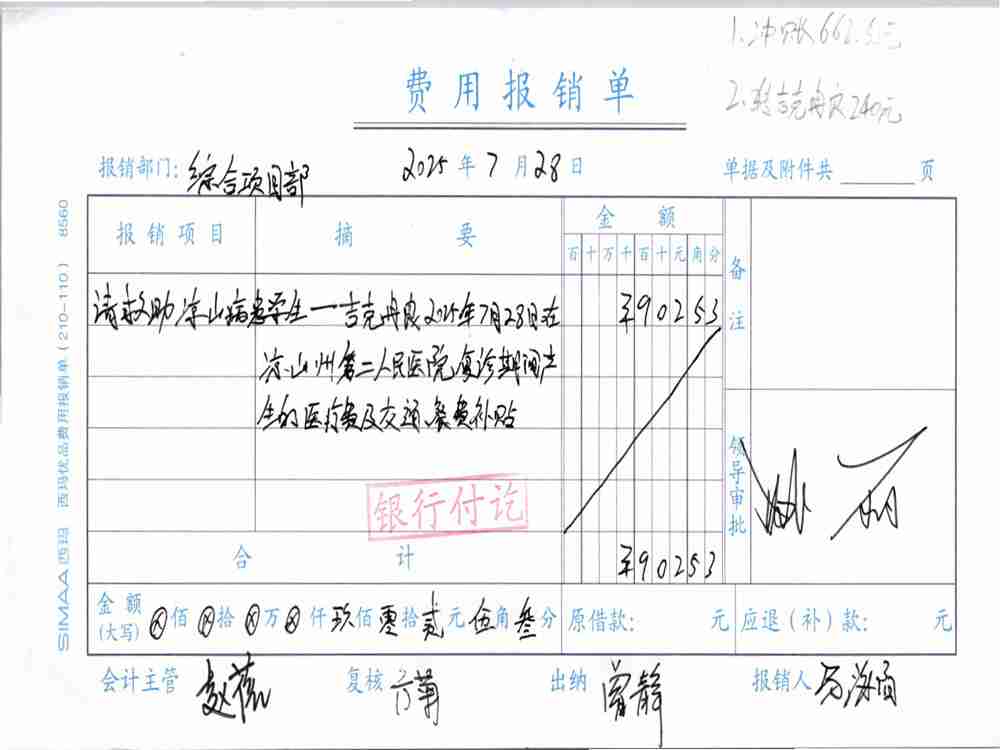 1.冲账662.53元
费用报销单
2.转吉克丹良240元
报销部门：综合项目部 2025年7月28日 单据及附件共 页
报销项目 摘要 金额 备注
百十万千百十元角分
请救助凉山病患学生一吉克丹良2025年7月28日在 ¥90253
凉山州第二人民医院复诊期间产
生的医疗费及交通、餐费补贴
领导审批
银行付讫
合计 ¥90253
金额(大写) ⊗佰⊗拾⊗万⊗仟玖佰零拾贰元伍角叁分 原借款： 元 应退（补）款： 元
会计主管 赵 复核 出纳 曾静 报销人 马海
SIMAA西玛 西玛优品费用报销单（210-110） 8560